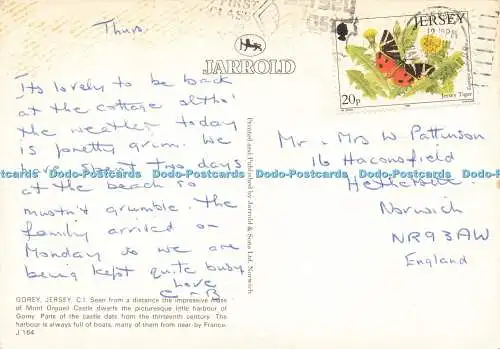 FIRST
CLASS
JERSEY
20p
Jersey Tiger
Thurs.
JARROLD
Its lovely to be back
at the cottage altho'
the weather today
is pretty grim. We
have spent two days
at the beach so
mustn't grumble. The
family arrived on
Monday so we are
being kept quite busy
Love
C & B
Mr & Mrs W. Pattinson
16 Haconsfield
Hethersett
Norwich
NR9 3AW
England
Printed and Published by Jarrold & Sons Ltd, Norwich
Dodo-Postcards Dodo-Postcards Dodo-Postcards Dodo-Postcards Dodo-Postcards
GOREY, JERSEY, C.I. Seen from a distance the impressive mass
of Mont Orgueil Castle dwarfs the picturesque little harbour of
Gorey. Parts of the castle date from the thirteenth century. The
harbour is always full of boats, many of them from near-by France.
J 164
Dodo-Postcards Dodo-Postcards Dodo-Postcards Dodo-Postcards Dodo-Postcards